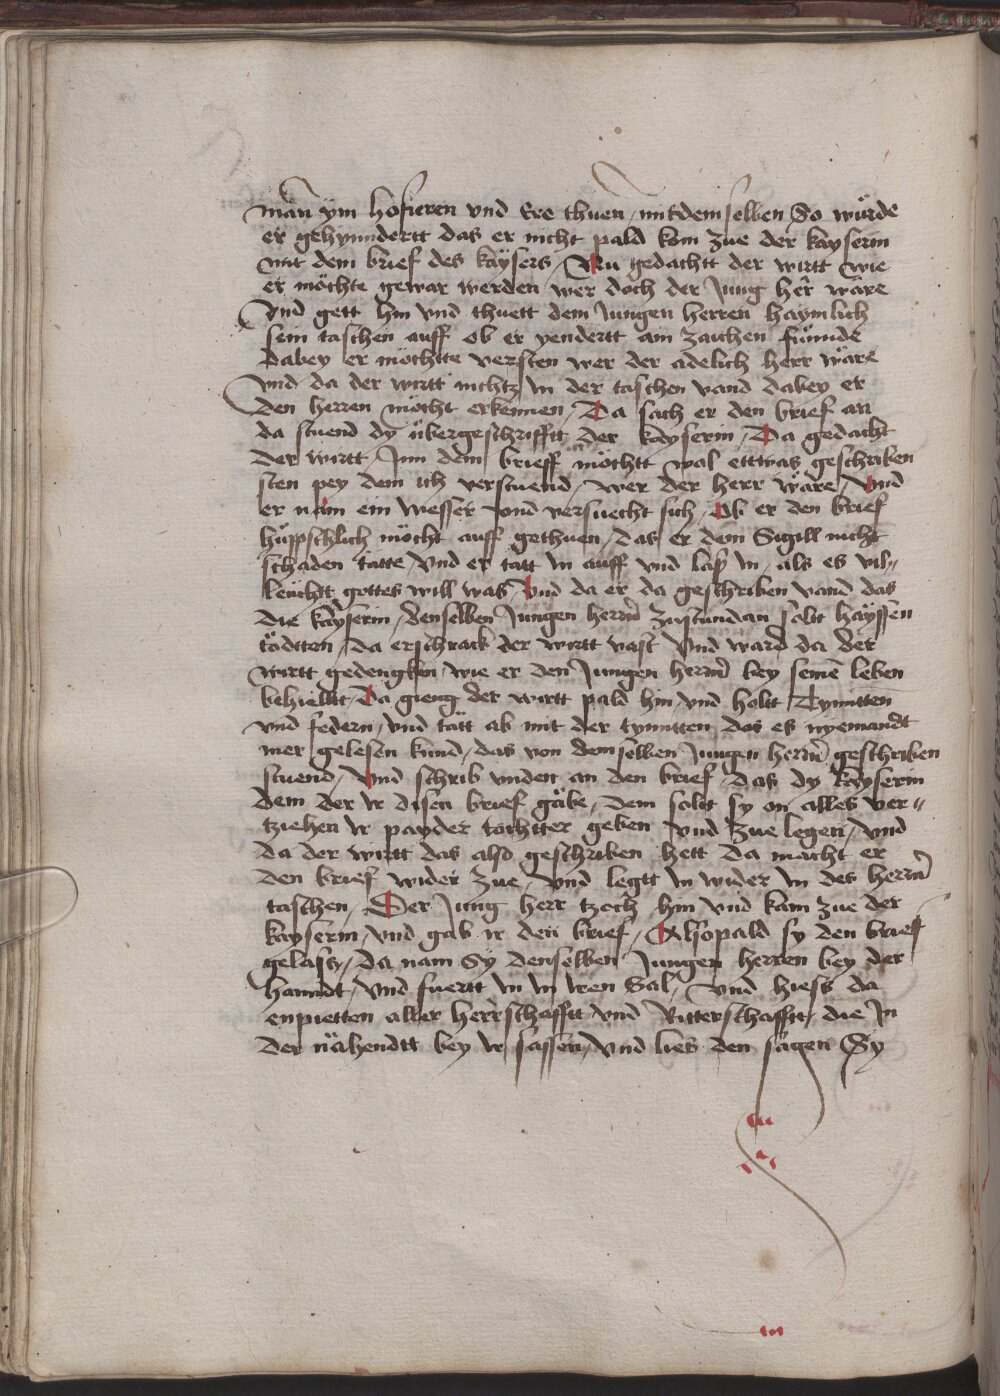 man ym hofieren vnd Ere thuen / mit dem selben So wurde
er gehynndertt das er nicht pald kom zue der kayserin
mit dem brief des kaysers / Nu gedachtt der wirtt wie
er möchte gewar werden wer doch der Jung her wäre
Vnd gett hin vnd thuett dem Jungen herren haymlich
sein taschen auff ob er yendertt ain zaichen funnde
Dabey er möchtte versten wer der adelich herr wäre
Vnd da der wirtt nichtz in der taschen vand dabey er
den herren möcht erkennen / Da sach er den brief an
da stuend dy übergeschrifftt der kayserin / Da gedacht
der wirtt / Inn dem brieff möchtt wol ettwas geschriben
sten pey dem ich verstuend / wer der herr wäre / Vnd
er nam ein messer vnd versuecht sich / Ob er den brief
hüppschlich möcht auff gethuen / das er dem Sigill nicht
schaden tätte / Vnd er tätt in auff vnd las in / als es vil„
leuchtt gottes will was / Vnd da er da geschriben vand das
die kayserin / denselben Jungen herrn zustundan solt hayssen
tödtten / Da erschrack der wirtt vast Vnd ward da der
wirtt gedengken / wie er den Jungen herrn bey seinē leben
behielltt / Da gieng der wirtt pald hin / vnd holtt Tynntten
vnd federn / vnd tätt ab mit der tynntten das es nyemandt
mer gelesen kund / das von dem selben Jungen herrn geschriben
stuend / Vnd schrib vnden an den brief / das dy kayserin
dem der ir disen brief gäbe / dem solt sy on alles ver„
tziehen ir payder tochtter geben vnd zue legen / Vnd
da der wirtt das also geschriben hett da macht er
den brief wider zue / Vnd legtt in wider in des herrn
taschen / Der Jung herr tzoch hin vnd kam zue der
kayserin / vnd gab ir den brief / Alsopald sy den brief
gelass / da nam Sy denselben Jungen herren bey der
hanndt / Vnd fuertt in in iren Sal / Vnd hiess da
enpietten aller herrschafftt vnd Ritterschafftt / die In
der nähendtt bey ir sassen / vnd lies den sagen Sy